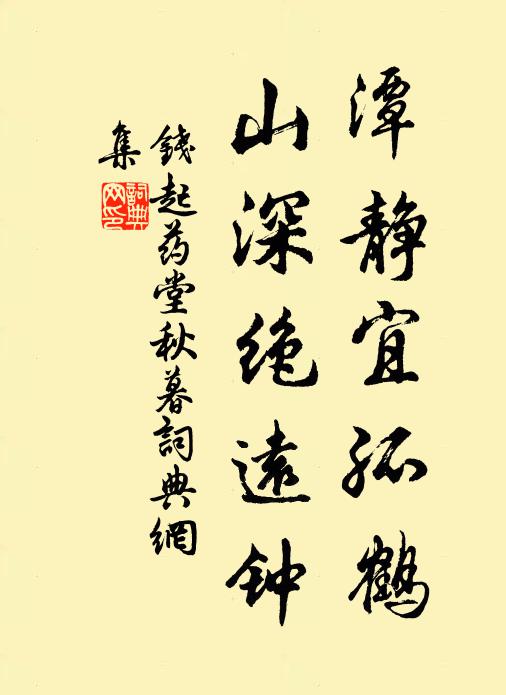 潭静宜孤鹤
山深绝远钟
錢起药堂秋暮詞典網
集
詞典
网印